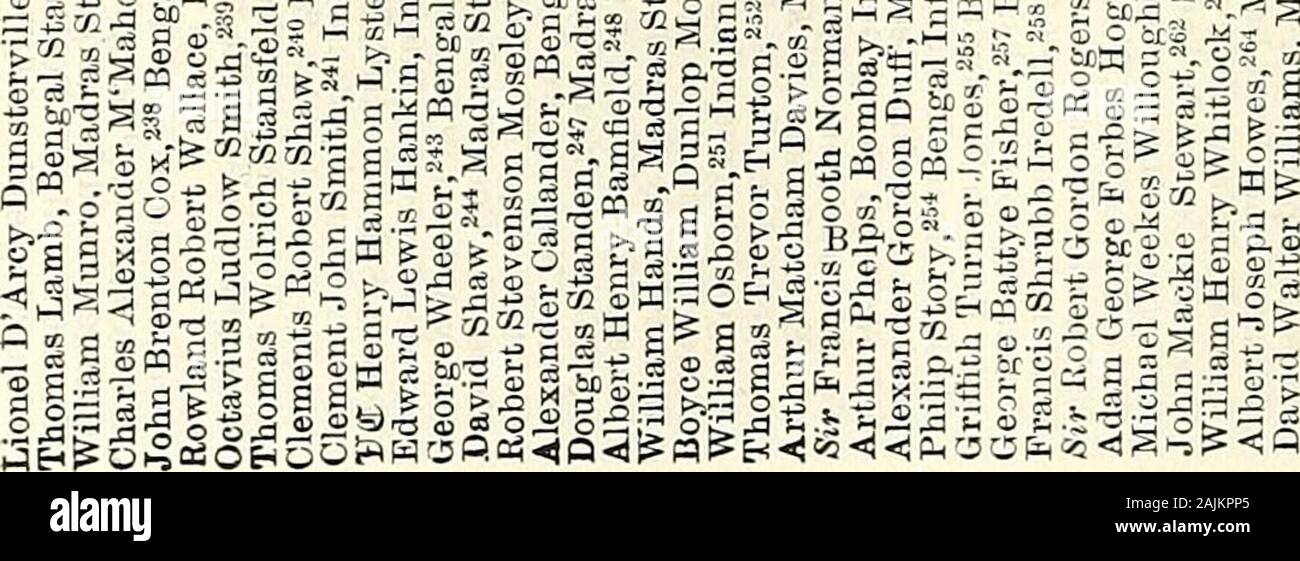 Lionel D'Arcy Dunsterville
Thomas Lamb, Bengal Sta
William Munro, Madras St
Charles Alexander M'Maho
John Brenton Cox,238 Beng
Rowland Robert Wallace,
Octavius Ludlow Smith,239
Thomas Wolrich Stansfeld
Clements Robert Shaw,240
Clement John Smith,241 In
VC Henry Hammon Lyste
Edward Lewis Hankin, In
George Wheeler,243 Bengal
David Shaw,244 Madras St
Robert Stevenson Moseley
Alexander Callander, Beng
Douglas Standen,247 Madra
Albert Henry Bamfield,248
William Hands, Madras St
Boyce William Dunlop Mo
William Osborn,251 Indian
Thomas Trevor Turton,252
Arthur Matcham Davies, M
Sir Francis Booth Norman
Arthur Phelps, Bombay In
Alexander Gordon Duff, M
Philip Story,254 Bengal Inf
Griffith Turner Jones,255 B
George Battye Fisher,257
Francis Shrubb Iredell,258
Sir Robert Gordon Rogers
Adam George Forbes Hog
Michael Weekes Willought
John Mackie Stewart,262
William Henry Whitlock,2
Albert Joseph Howes,264 M
David Walter Williams, M
alamy
Image ID: 2AJKPP5
www.alamy.com